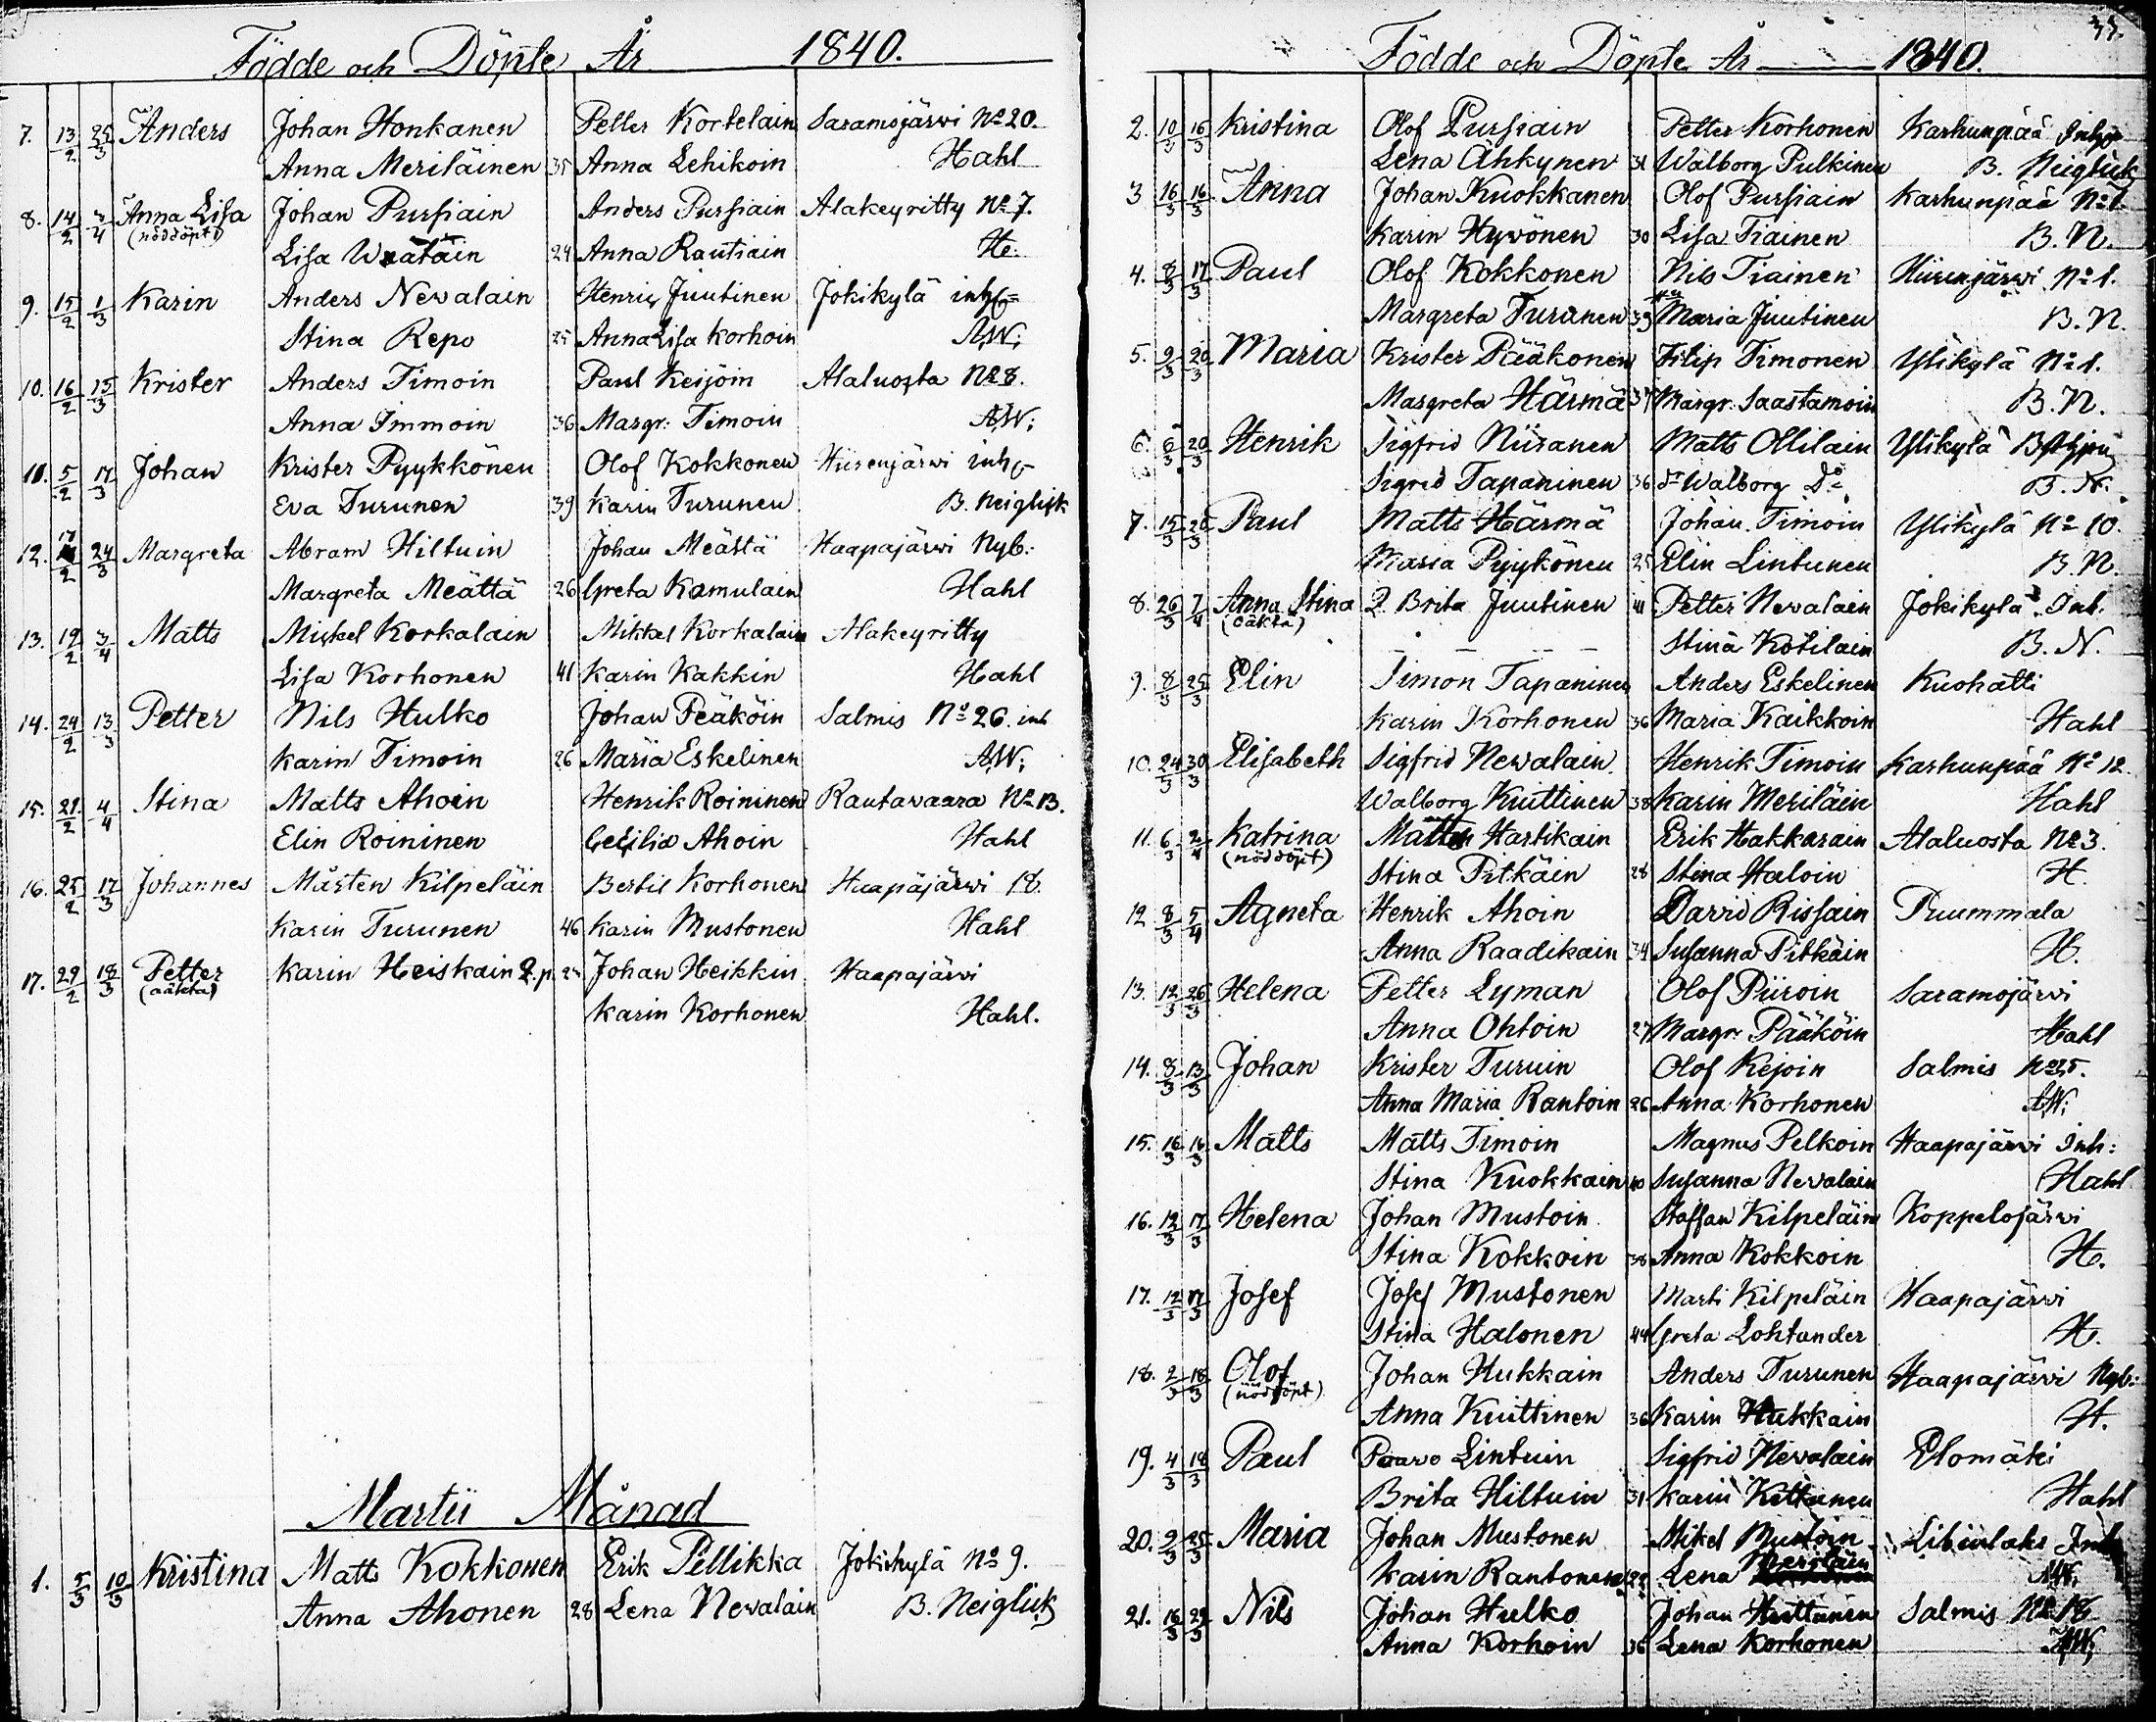 Födde och Döpte År 1840.
7. 13/2 25/3 Anders Johan Honkanen Petter Kortelain Saramojärvi No 20.
Anna Meriläinen 35 Anna Lehikoin Hahl
8. 14/2 3/4 Anna Lisa Johan Pursiain Anders Pursiain Alakeyritty No 7.
(nöddöpt)
Lisa Wäätäin 24 Anna Rautiain H.
9. 15/2 1/3 Karin Anders Newalain Henric Juutinen Jokikylä inh
Stina Repo 25 Anna Lisa Korhoin AW;
10. 16/2 15/3 Krister Anders Timoin Paul Keijoin Alaluosta No 8.
Anna Immoin 36 Margr: Timoin AW;
11. 5/2 17/3 Johan Krister Pyykkönen Olof Kokkonen Hiirenjärwi inh
Eva Turunen 39 Karin Turunen B. Neiglick
12. 17/2 24/3 Margreta Abram Hiltuin Johan Meättä Haapajärwi Nyb:
Margreta Meättä 26 Greta Kamulain Hahl
13. 19/2 3/4 Matts Mickel Korkalain Mikkel Korkalain Alakeyritty
Lisa Korhonen 41 Karin Kakkin Hahl
14. 24/2 13/3 Petter Nils Hulko Johan Peäköin Salmis No 26. inh
Karin Timoin 26 Maria Eskelinen AW;
15. 21/2 4/4 Stina Matts Ahoin Henrik Roininen Rautavaara No 13.
Elin Roininen Cecilia Ahoin Hahl
16. 25/2 17/3 Johannes Mårten Kilpeläin Bertil Korhonen Haapajärwi 18
Karin Turunen 46 Karin Mustonen Hahl
17. 29/2 18/3 Petter Karin Heiskain Q.p. Johan Heikkin Haapajärwi
(oäkta)
Karin Korhonen Hahl.
Martii Månad
1. 5/3 10/3 Kristina Matts Kokkonen Erik Pellikka Jokikylä No 9.
Anna Ahonen 28 Lena Newalain B. Neiglick
Födde och Döpte År 1840.
2. 10/3 16/3 Kristina Olof Pursiain Petter Korhonen Karhunpää Inh
Lena Ähkynen 31 Walborg Pulkinen B. Neiglick
3 16/3 16/3 Anna Johan Kuokkanen Olof Pursiain Karhunpää No 1.
Karin Hyvönen 30 Lisa Tiainen B. N.
4. 8/3 17/3 Paul Olof Kokkonen Nils Tiainen Hiirenjärwi No 1.
Margreta Turunen 39 Maria Juutinen B. N.
5. 9/3 20/3 Maria Krister Pääkonen Filip Timonen Ylikylä No 1.
Margreta Härmä 37 Margr. Saastamoin B. N.
6. 6/3 20/3 Henrik Sigfrid Niiranen Matts Ollilain Ylikylä
Sigrid Tapaninen 36 Walborg Do B. N.
7. 15/3 25/3 Paul Matts Härmä Johan Timoin Ylikylä No 10.
Maria Pyykönen 25 Elin Lintunen B. N.
8. 26/3 7/4 Anna Stina Q. Brita Juutinen 41 Petter Newalain Jokikylä Inh.
(oäkta)
Stina Kotilain B. N.
9. 8/3 25/3 Elin Simon Tapaninen Anders Eskelinen Kuohatti
Karin Korhonen 36 Maria Kaikkoin Hahl
10. 24/3 30/3 Elisabeth Sigfrid Newalain Henrik Timoin Karhunpää No 12.
Walborg Kuittinen 38 Karin Meriläin Hahl
11. 6/3 2/4 Katrina Hartikain Erik Hakkarain Alaluosta No 3.
(nöddöpt)
Stina Pitkäin 28 Stina Haloin H.
12 8/3 5/4 Agneta Henrik Ahoin David Rissain Puummala
Anna Raadikain 34 Susanna Pitkäin H.
13. 12/3 26/3 Helena Petter Lyman Olof Piiroin Saramojärvi
Anna Ohtoin 27 Margr: Pääköin Hahl
14. 8/3 13/3 Johan Krister Turuin Olof Kejoin Salmis No 25.
Anna Maria Rantoin 26 Anna Korhonen AW;
15. 16/3 16/3 Matts Matts Timoin Magnus Pelkoin Haapajärwi Inh:
Stina Kuokkain 40 Susanna Newalain Hahl
16. 12/3 17/3 Helena Johan Mustoin Staffan Kilpeläin Koppelojärwi
Stina Kokkoin 38 Anna Kokkoin H.
17. 12/3 17/3 Josef Josef Mustonen Marti Kilpeläin Haapajärwi
Stina Halonen 44 Greta Lohtander H.
18. 2/3 18/3 Olof Johan Hukkain Anders Turunen Haapajärwi Nyb:
(nöddöpt)
Anna Kuittinen 36 Karin Hukkain H.
19. 4/3 18/3 Paul Paavo Lintuin Sigfrid Newalain Elomäki
Brita Hiltuin 31 Karin Kettunen Hahl
20. 9/3 25/3 Maria Johan Mustonen Mikel Mustoin Inh
Karin Rantonen 22 Lena Meriläin AW;
21. 16/3 29/3 Nils Johan Hulko Johan Huttunen Salmis No 18
Anna Korhoin 36 Lena Korhonen AW;